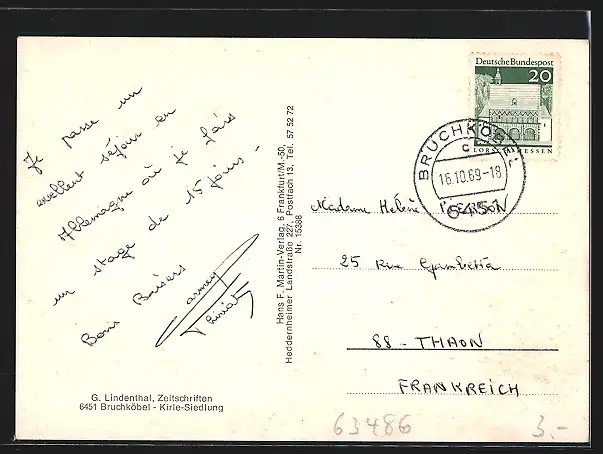 Je passe un
excellent séjour en
Allemagne où je fais
un stage de 15 jours -
Bons Baisers
G. Lindenthal, Zeitschriften
6451 Bruchköbel - Kirle-Siedlung
Hans F. Martin-Verlag, 6 Frankfurt/M.-50,
Heddernheimer Landstraße 227, Postfach 13, Tel. 57 52 72
Nr. 15388
Deutsche Bundespost
20
LORSCH/HESSEN
BRUCHKÖBEL
c
16.10.69-18
6451
Madame Helène PIERSON
25 Rue Gambetta
88 - THAON
FRANKREICH
63486
3.-